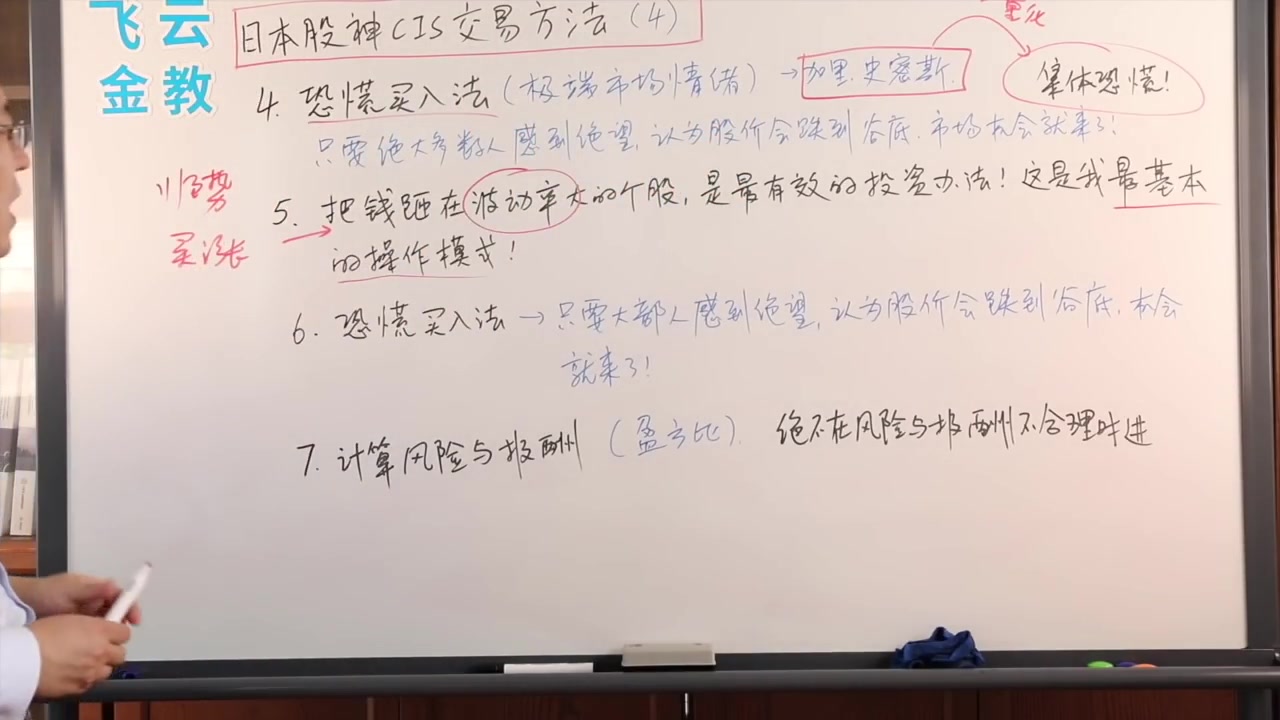 飞云
金教
日本股神CIS交易方法（4）
量化
4. 恐慌买入法（极端市场情绪）→加里.史密斯.
集体恐慌！
只要绝大多数人感到绝望，认为股价会跌到谷底.市场机会就来了！
顺势
买涨
5. 把钱砸在波动率大的个股，是最有效的投资办法！这是我最基本
的操作模式！
6. 恐慌买入法→只要大部人感到绝望，认为股价会跌到谷底.机会
就来了！
7. 计算风险与报酬（盈亏比）. 绝不在风险与报酬不合理时进